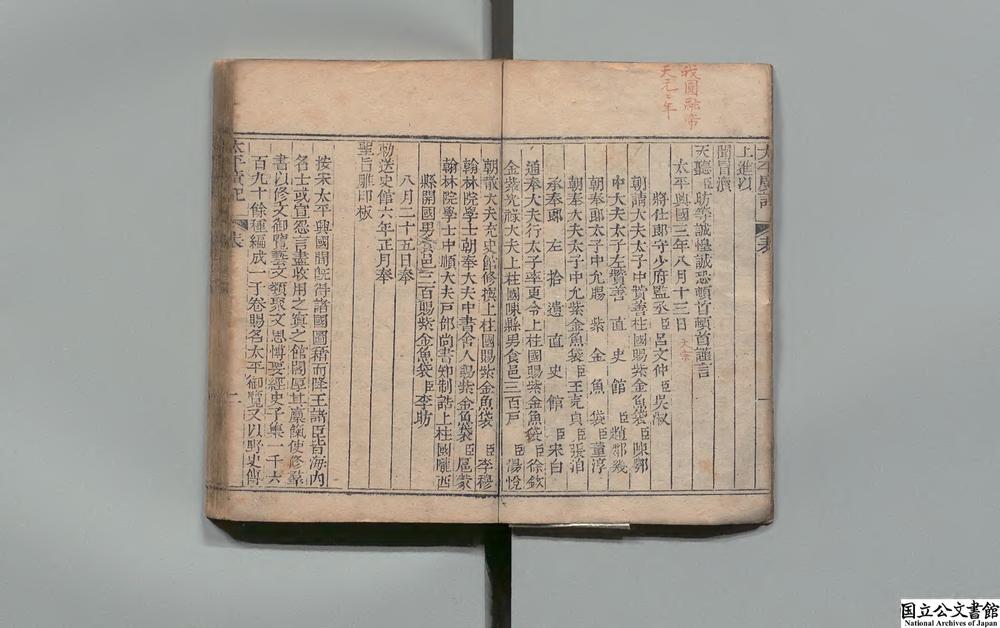 我圓融帝
天元二年
太平廣記
表
上進以
聞冒瀆
天聽臣昉等誠惶誠恐頓首頓首謹言
太平興國三年八月十三日 太宗
將仕郎守少府監丞臣呂文仲臣吳淑
朝請大夫太子中贊善柱國賜紫金魚袋臣陳鄂
中大夫太子左贊善直史館臣趙鄰幾
朝奉郎太子中允賜紫金魚袋臣董淳
朝奉大夫太子中允紫金魚袋臣王克貞臣張洎
承奉郎左拾遺直史館臣宋白
通奉大夫行太子率更令上柱國賜紫金魚袋臣徐鉉
金紫光祿大夫上柱國陳縣男食邑三百戶臣湯悅
朝散大夫充史館修撰上柱國賜紫金魚袋臣李穆
翰林院學士朝奉大夫中書舍人賜紫金魚袋臣扈蒙
翰林院學士中順大夫戶部尚書知制誥上柱國隴西
縣開國男食邑三百賜紫金魚袋臣李昉
八月二十五日奉
勅送史館六年正月奉
聖旨雕印板
按宋太平興國間既得諸國圖籍而降王諸臣皆海內
名士或宣怨言盡收用之寘之館閣厚其廩餼使修羣
書以修文御覽藝文類聚文思博要經史子集一千六
百九十餘種編成一千卷賜名太平御覽又以野史傳
太平廣記
表
二
国立公文書館
National Archives of Japan